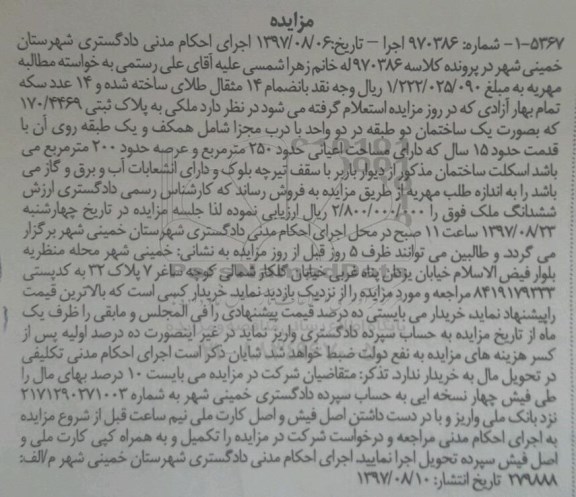 مزایده
۱-۵۳۶۷- شماره: ۹۷۰۳۸۶ اجرا – تاریخ:۱۳۹۷/۰۸/۰۶ اجرای احکام مدنی دادگستری شهرستان
خمینی شهر در پرونده کلاسه ۹۷۰۳۸۶ له خانم زهرا شمسی علیه آقای علی رستمی به خواسته مطالبه
مهریه به مبلغ ۱/۲۲۲/۰۲۵/۰۹۰ ریال وجه نقد بانضمام ۱۴ مثقال طلای ساخته شده و ۱۴ عدد سکه
تمام بهار آزادی که در روز مزایده استعلام گرفته می شود در نظر دارد ملکی به پلاک ثبتی ۱۷۰/۴۴۶۹
که بصورت یک ساختمان دو طبقه در دو واحد با درب مجزا شامل همکف و یک طبقه روی آن با
قدمت حدود ۱۵ سال که دارای مساحت اعیانی حدود ۲۵۰ مترمربع و عرصه حدود ۲۰۰ مترمربع می
باشد اسکلت ساختمان مذکور از دیوار باربر با سقف تیرچه بلوک و دارای انشعابات آب و برق و گاز می
باشد را به اندازه طلب مهریه از طریق مزایده به فروش رساند که کارشناس رسمی دادگستری ارزش
ششدانگ ملک فوق را ۲/۸۰۰/۰۰۰/۰۰۰ ریال ارزیابی نموده لذا جلسه مزایده در تاریخ چهارشنبه
۱۳۹۷/۰۸/۲۳ ساعت ۱۱ صبح در محل اجرای احکام مدنی دادگستری شهرستان خمینی شهر برگزار
می گردد. و طالبین می توانند ظرف ۵ روز قبل از روز مزایده به نشانی: خمینی شهر محله منظریه
بلوار فیض الاسلام خیابان یزدان پناه غربی خیابان گلکار شمالی کوچه ساغر ۷ پلاک ۳۲ به کدپستی
۸۴۱۹۱۷۹۲۳۳ مراجعه و مورد مزایده را از نزدیک بازدید نماید. خریدار کسی است که بالاترین قیمت
را پیشنهاد نماید، خریدار می بایستی ده درصد قیمت پیشنهادی را فی المجلس و مابقی را ظرف یک
ماه از تاریخ مزایده به حساب سپرده دادگستری واریز نماید در غیر اینصورت ده درصد اولیه پس از
کسر هزینه های مزایده به نفع دولت ضبط خواهد شد. شایان ذکر است اجرای احکام مدنی تکلیفی
در تحویل مال به خریدار ندارد. تذکر: متقاضیان شرکت در مزایده می بایست ۱۰ درصد بهای مال را
طی فیش چهار نسخه ایی به حساب سپرده دادگستری خمینی شهر به شماره ۲۱۷۱۲۹۰۲۷۱۰۰۳
نزد بانک ملی واریز و با در دست داشتن اصل فیش و اصل کارت ملی نیم ساعت قبل از شروع مزایده
به اجرای احکام مدنی مراجعه و درخواست شرکت در مزایده را تکمیل و به همراه کپی کارت ملی و
اصل فیش سپرده تحویل اجرا نمایید. اجرای احکام مدنی دادگستری شهرستان خمینی شهر م/الف:
۲۷۹۸۸۸ تاریخ انتشار: ۱۳۹۷/۰۸/۱۰